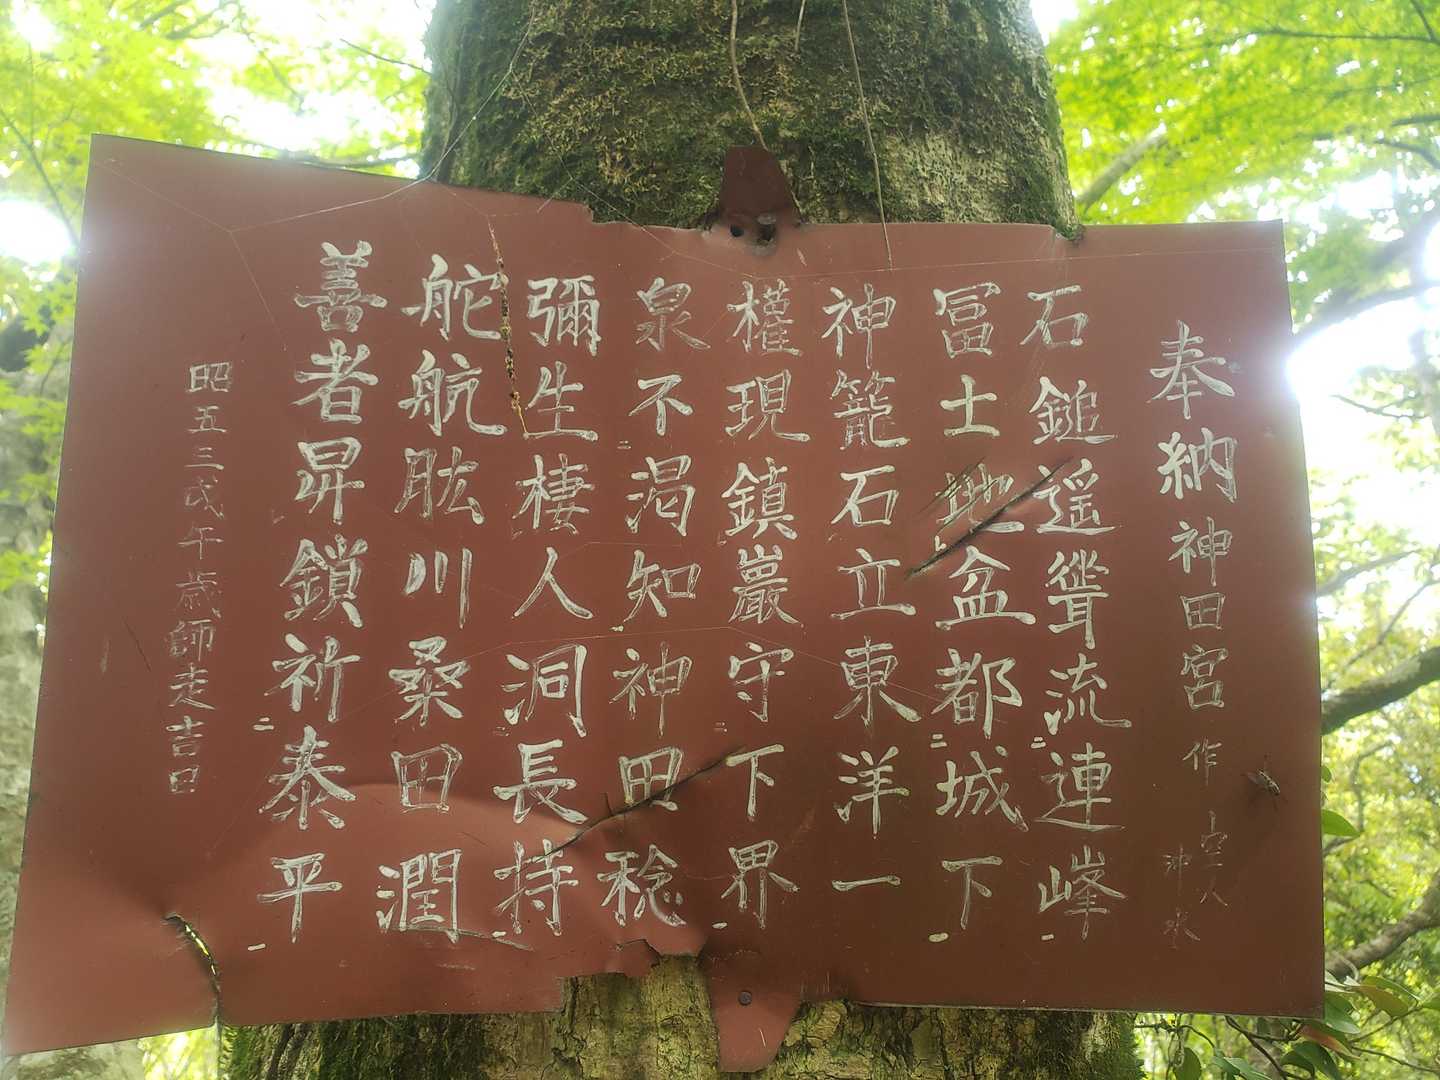 奉納 神田宮 作
石鎚遥聳流連峰
冨士地盆都城下
神籠石立東洋一
權現鎮巖守下界
泉不渇知神田稔
彌生棲人洞長持
舵航肱川桑田潤
善者昇鎖祈泰平
昭五三戊午歳師走吉日